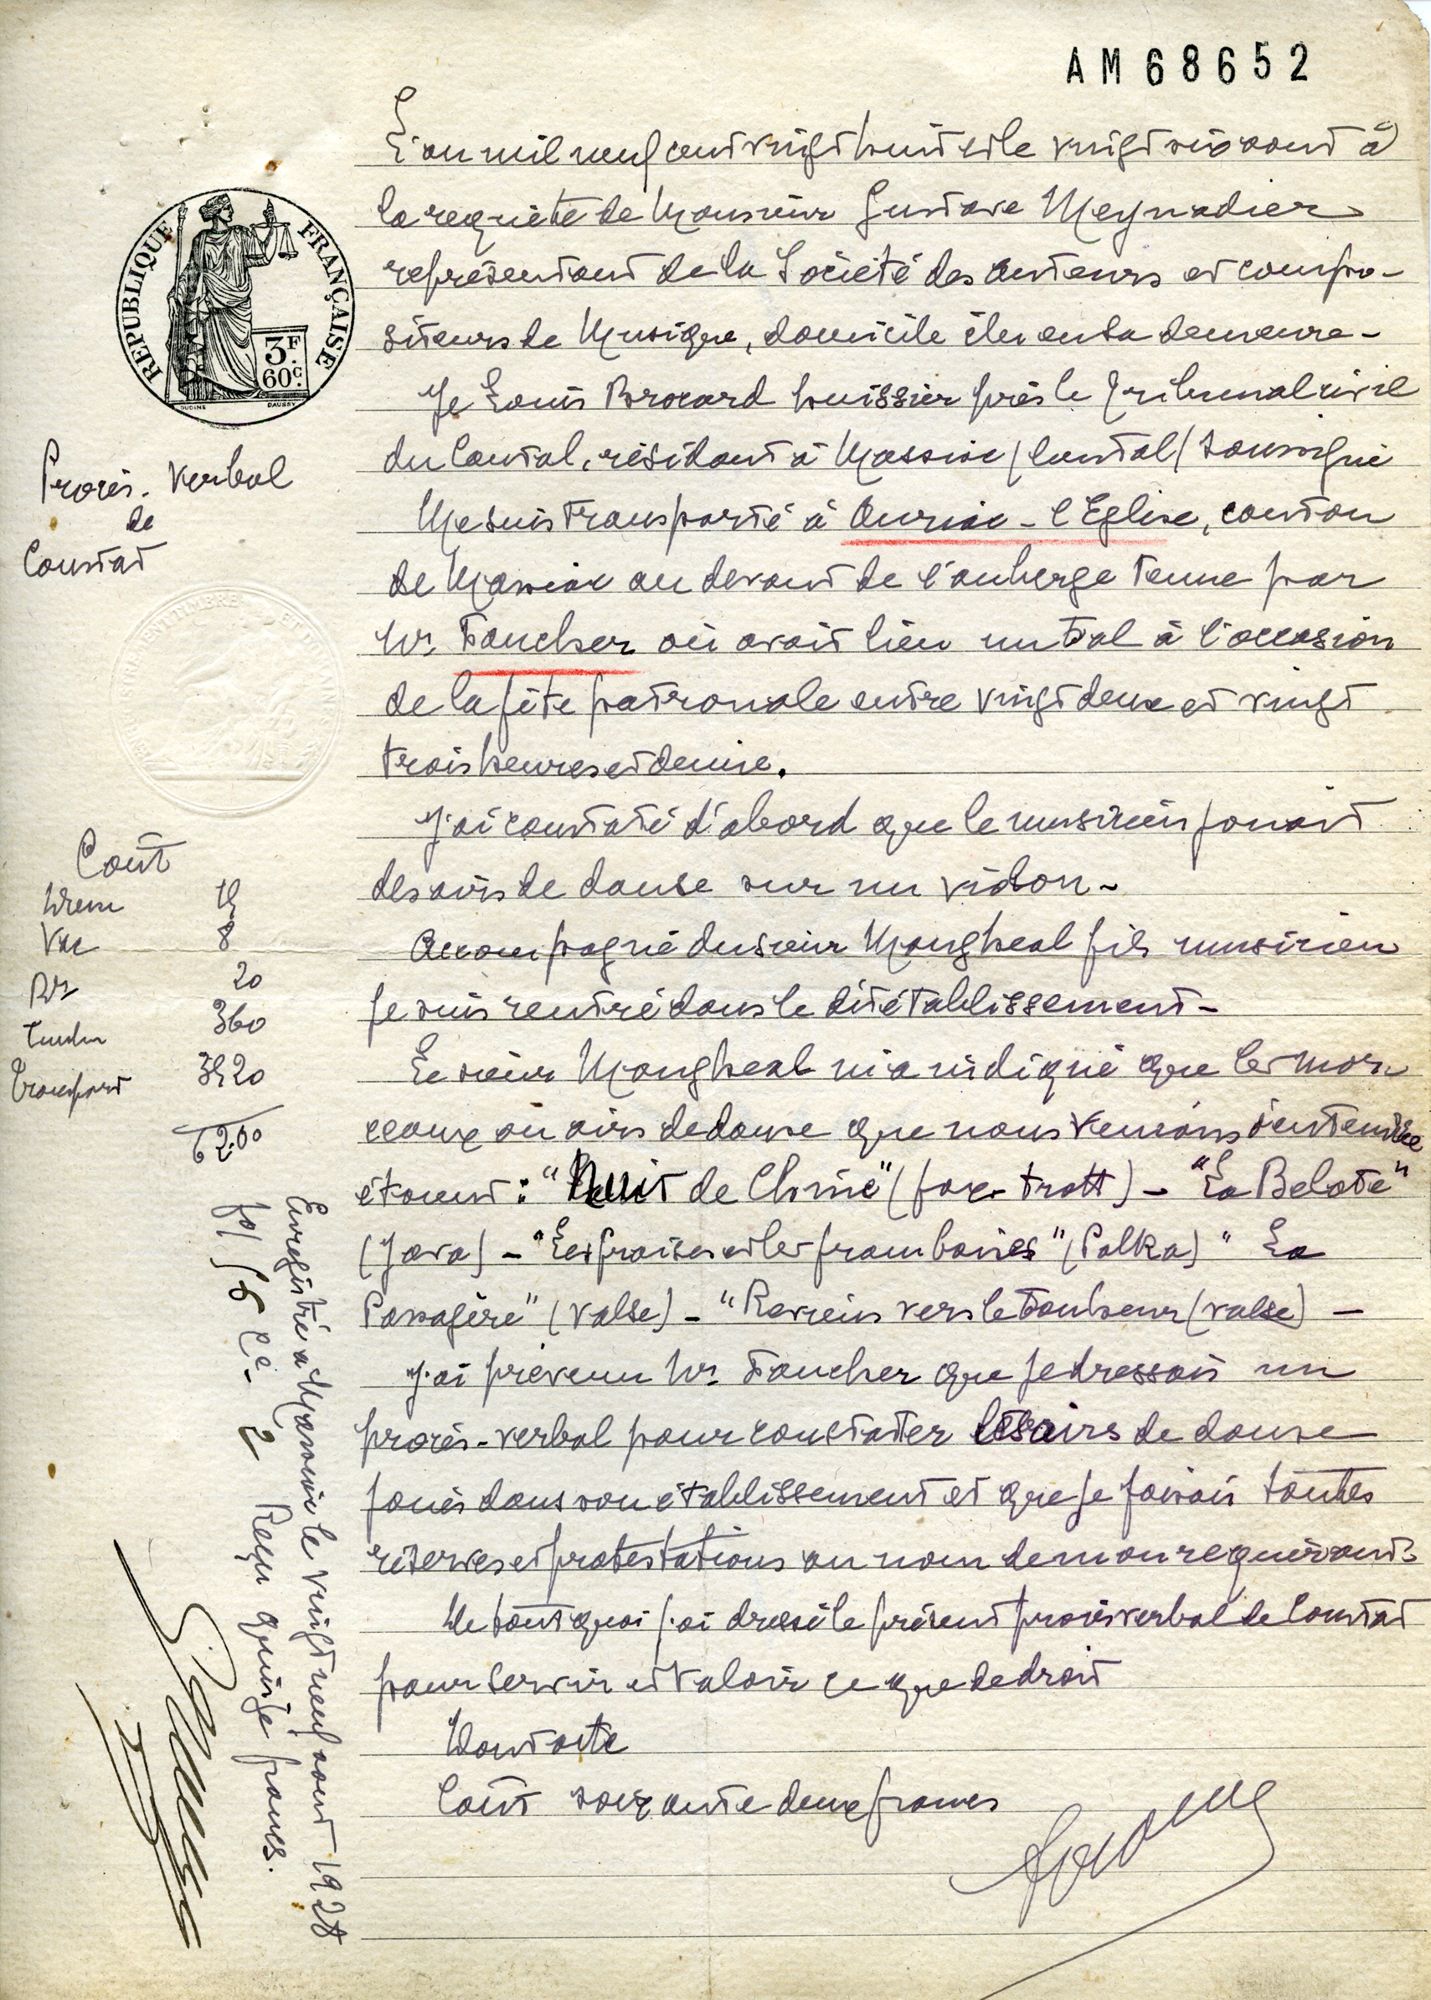 AM68652
L'an mil neuf cent vingt huit et le vingt six aout à
la requête de Monsieur Gustave Meynadier
représentant de la Société des auteurs et compo-
siteurs de Musique, domicile élu en sa demeure -
Je Louis Brocard huissier près le Tribunal civil
du Cantal, résidant à Massiac (Cantal) soussigné
Me suis transporté à Auriac-l'Eglise, canton
de Massiac au devant de l'auberge tenue par
Mr Faucher où avait lieu un bal à l'occasion
de la fête patronale entre vingt deux et vingt
trois heures et demie.
J'ai constaté d'abord que le musicien jouait
des airs de danse sur un violon -
Accompagné du sieur Mangheal fils musicien
je suis rentré dans le dit établissement -
Le sieur Mangheal m'a indiqué que les mor
ceaux ou airs de danse que nous venions d'entendre
étaient : "Nuit de Chine" (fox-trott) - "La Belote"
(Java) - "Les fraises et les framboises" (Polka) " La
Passagère" (valse) - "Reviens vers le bonheur (valse) -
J'ai prévenu Mr Faucher que je dressais un
procès-verbal pour constater les airs de danse
joués dans son établissement et que je faisais toutes
réserves et protestations au nom de mon requérant -
De tout quoi j'ai dressé le présent procès verbal de Constat
pour servir et valoir ce que de droit
Dont acte
Coût soixante deux francs
RÉPUBLIQUE FRANÇAISE
3F
60c.
OUDINÉ DAUSSY
Procès-verbal
de
Constat
Coût
8
20
360
Transport
62.00
Enregistré à Massiac le vingt neuf aout 1928
Reçu quinze francs.